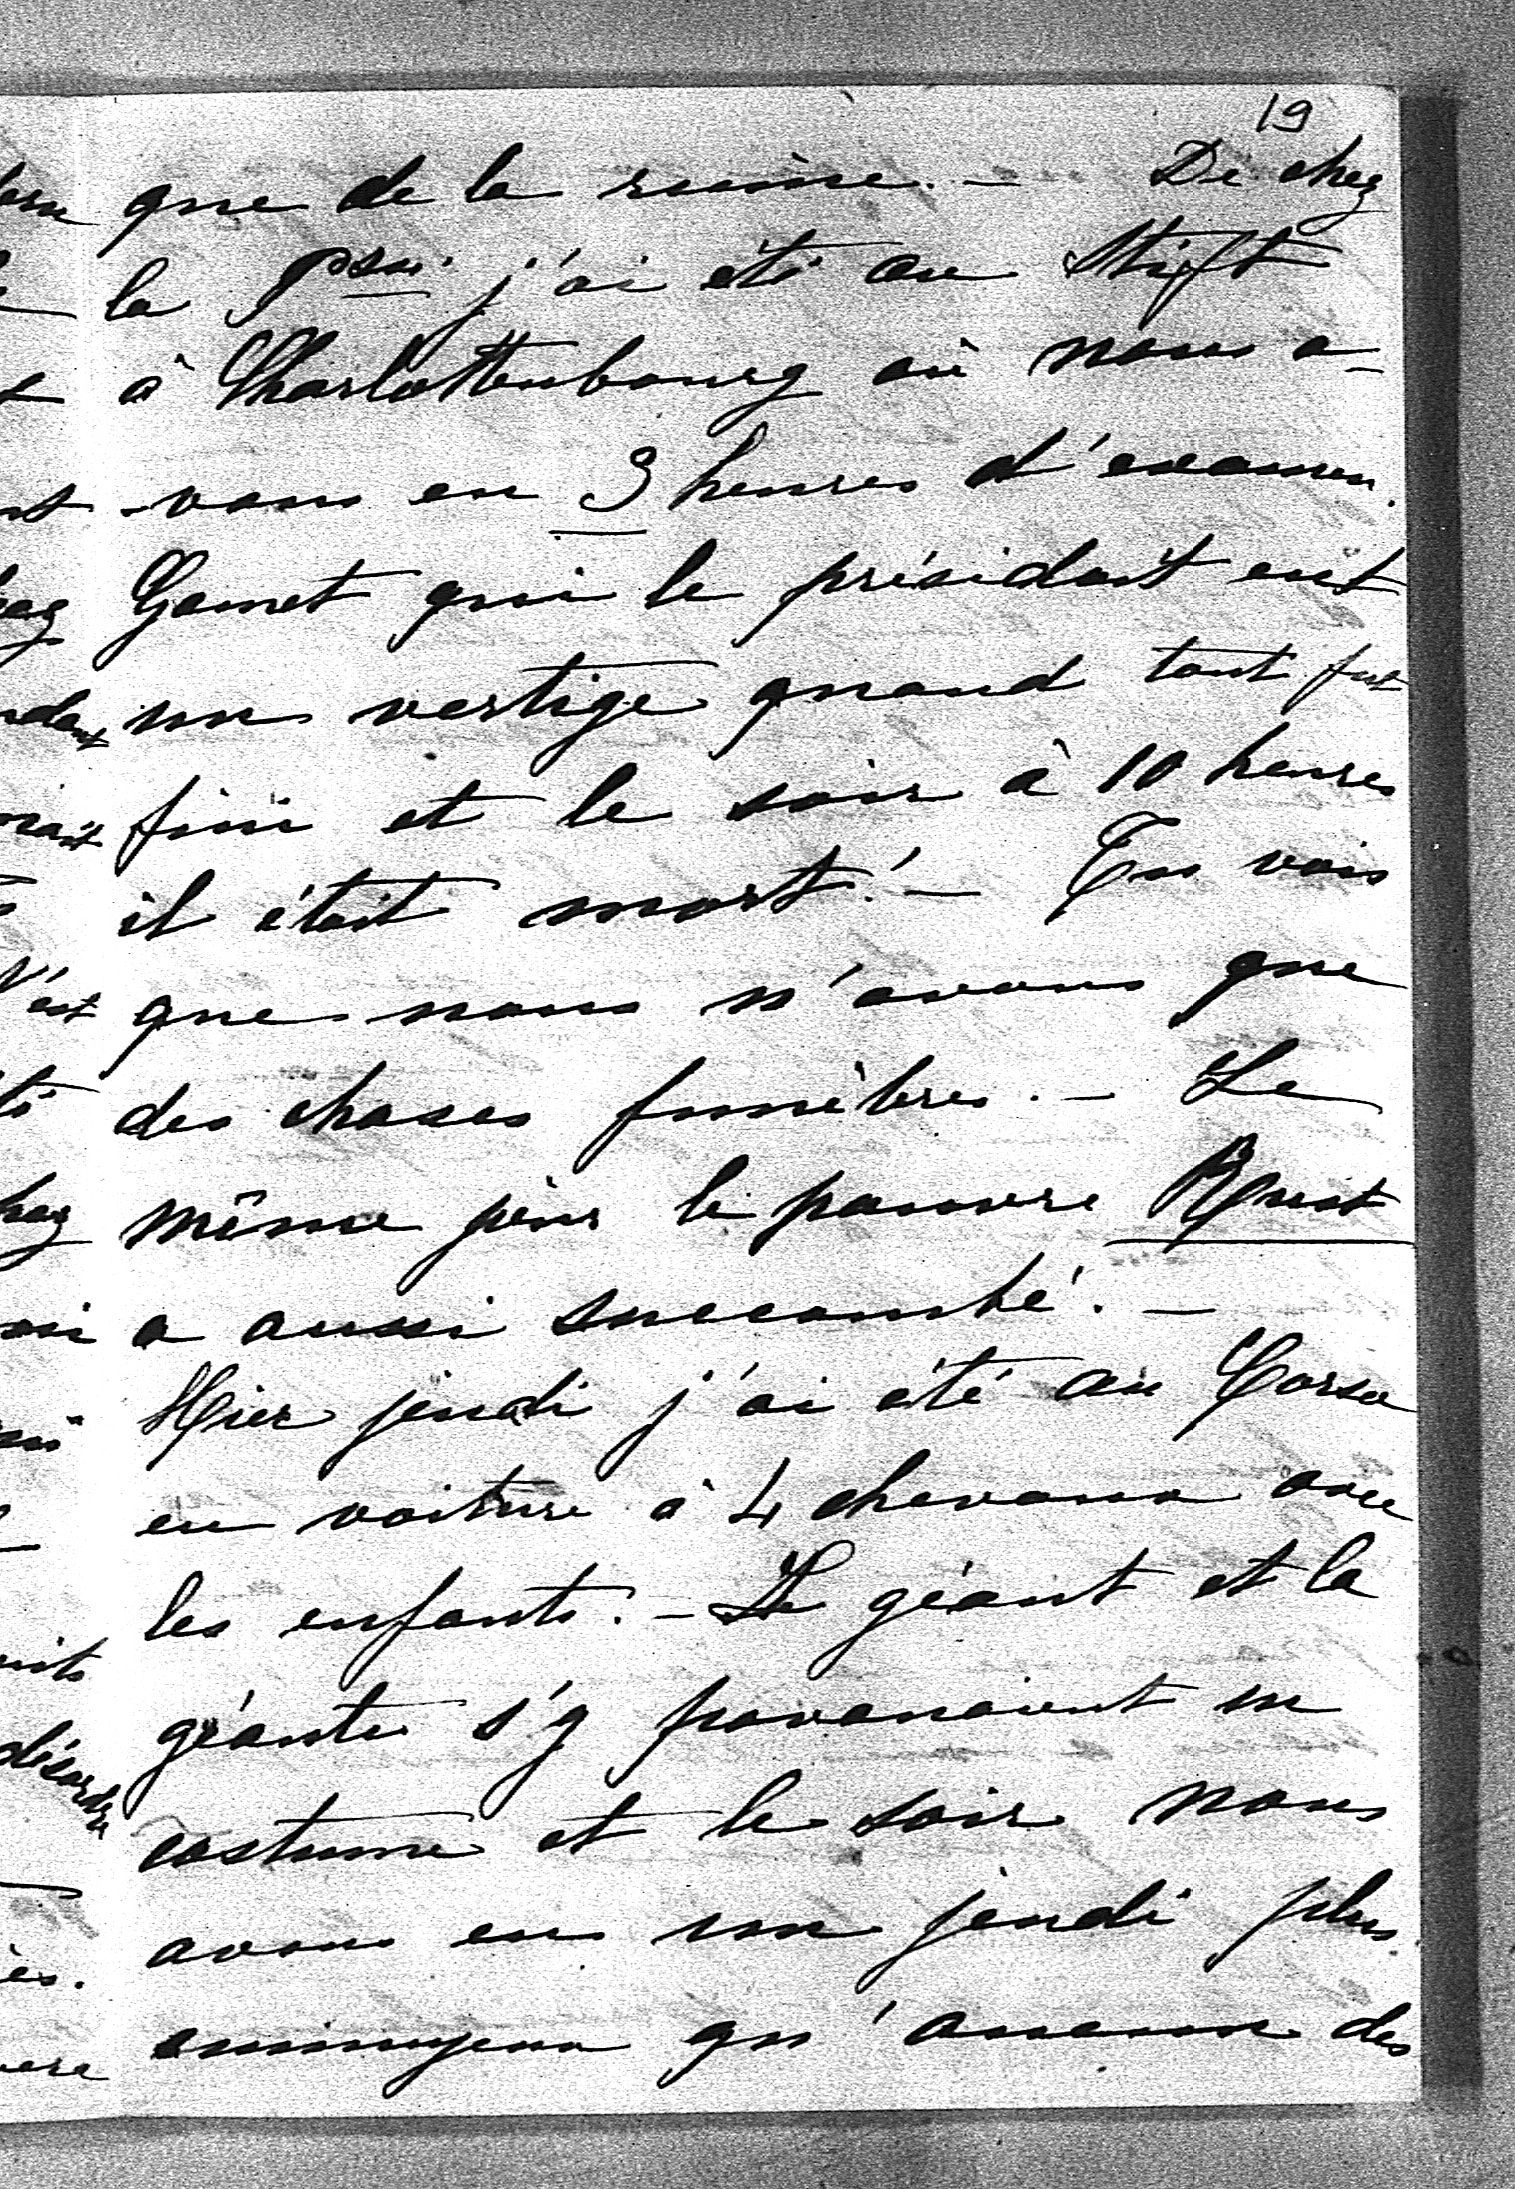 19
que de la ruine. — De chez
la Psse. j'ai été au Stift
à Charlottenbourg où nous a-
-vons eu 3 heures d'examen.
Gamet qui le présidait eut
un vertige quand tout fut
fini et le soir à 10 heures
il était mort! — Tu vois
que nous n'avons que
des choses funèbres. — Le
même jour le pauvre
a aussi succombé. —
Hier jeudi j'ai été au Corso
en voiture à 4 chevaux avec
les enfants. — Le géant et la
géante s'y pavanaient en
costume et le soir nous
avons eu un jeudi plus
ennuyeux qu'aucun des